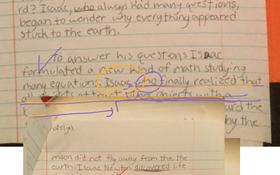 rd? Isaac, who always had many questions,
began to wonder why everything appeared
stuck to the earth.
To answer his questions Isaac
formulated a new kind of math studying
many equations. Isaac who finally realized that
objects with a
ard the
by the
moon did not fly away from the the
earth. Isaac Newton discovered life